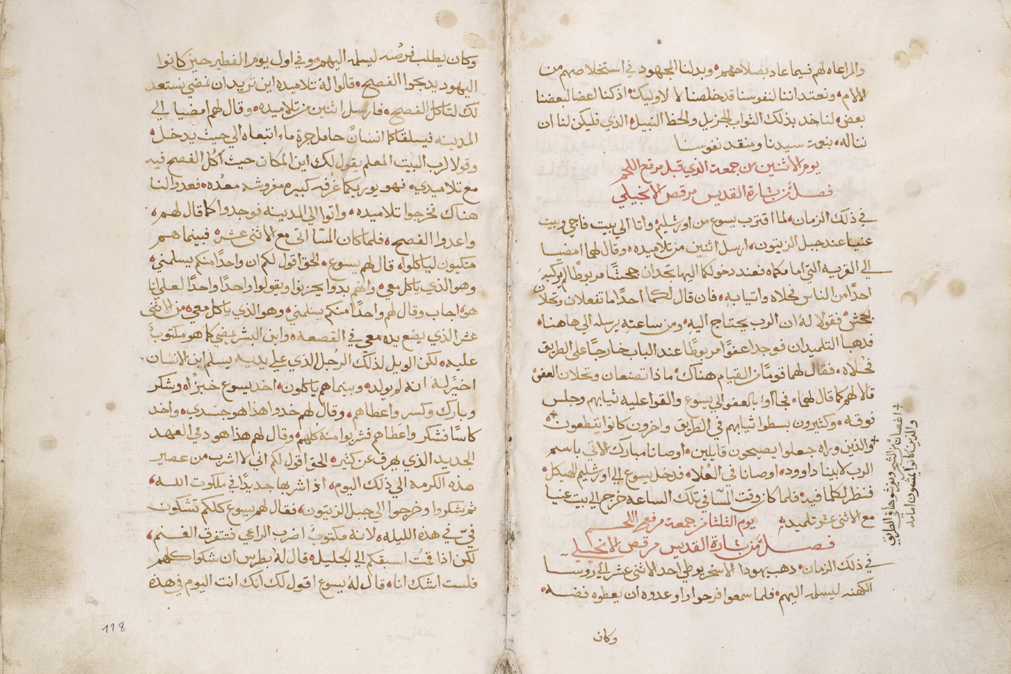 والمراعاه لهم فيما عاد بصلاحهم وبدلنا المجهود في استخلاصهم من
الالام ونعتد اننا لنفوسنا قد خلصنا لا لاوليك اذ كنا اعضا لبعضنا
بعض لناخد بذلك الثواب الجزيل والحظ النبيل الذي فليكن لنا ان
نناله بنعمة سيدنا ومنقد نفوسنا
يوم الاثنين من جمعة الذي قبل مرفع اللحم
فصل من بشارة القديس مرقص الانجيلي
في ذلك الزمان لما اقترب يسوع من اورشليم واتا الي بيت فاجي وبيت
عنيا عند جبل الزيتون ارسل اثنين من تلاميده وقال لهما امضيا
الي القرية التي امامكما فعند دخولكما اليها تجدان جحشا مربوطا لم يركبه
احدا من الناس فحلاه واتيا به فان قال لكما احدا ما تفعلان وتحلان
الجحش فقولا له ان الرب يحتاج اليه ومن ساعته يرسله الي هاهنا
فدهبا التلميدان فوجدا عفوا مربوطا عند الباب خارجا علي الطريق
فحلاه فقال لهما قوما من القيام هناك ماذا تصنعان وتحلان العفو
قالا لهم كما قال لهما فجاوا بالعفو الي يسوع والقوا عليه ثيابهم وجلس
فوقه وكثيرون بسطوا ثيابهم في الطريق واخرون كانوا يقطعون
والذين وراه جعلوا يصيحون قايلين اوصانا مبارك الاتي باسم
الرب لابينا داوود اوصانا في العلا فدخل يسوع الي اورشليم الهيكل
فنظر لكلما فيه فلما كان وقت المسا في تلك الساعة خرج الي بيت عنيا
مع الاثني عشر تلميده يوم الثلثا من جمعة مرفع اللحم
فصل من بشارة القديس مرقص الانجيلي
في ذلك الزمان دهب يهودا الاسخريوطي احد الاثني عشر الي روسا
الكهنه ليسلمه اليهم فلما سمعوا فرحوا واوعدوه ان يعطوه فضه
وكان
اغصان من الشجر ويفرشوها في الطريق
والذين كانوا يمشون امامه
وكان يطلب فرصه ليسلمه اليهم وفي اول يوم الفطير حين كانوا
اليهود يدبحوا الفصح قالوا له تلاميده اين تريد ان نمضي نستعد
لك لتاكل الفصح فارسل اثنين من تلاميده وقال لهم امضيا الي
المدينه فيسلقاكما انسان حامل جرة ماء اتبعاه الي حيث يدخل
وقولا لرب البيت المعلم يقول لك اين المكان حيث اكل الفصح فيه
مع تلاميدي فهو يوريكما غرفه كبيره مفروشه معده فعدوا لنا
هناك فخرجوا تلاميده واتوا الي المدينه فوجدوا كما قال لهم
واعدوا الفصح فلما كان المسا اتى مع الاثني عشر فبينما هم
متكيون لياكلوا قال لهم يسوع الحق اقول لكم ان واحدا منكم يسلمني
وهو الذي ياكل معي وانهم بدوا يحزنوا ويقولوا واحدا واحدا لعلي انا
هو اجاب وقال لهم واحدا منكم يسلمني وهو الذي ياكل معي من الاثني
عشر الذي يضع يده معي في القصعه وابن البشر يمضي كما هو مكتوب
عليه لكن الويل لذلك الرجل الذي علي يديه يسلم ابن الانسان
اخير له انه لم يولد وبينما هم ياكلون اخد يسوع خبزا وشكر
وبارك وكسر واعطاهم وقال لهم خدوا هذا هو جسدي واخد
كاسا فشكر واعطاهم فشربوا منه كلهم وقال لهم هذا هو دمي العهد
الجديد الذي يهرق عن كثيره الحق اقول لكم اني لا اشرب من عصير
هذه الكرمه الي ذلك اليوم اذا اشربها جديدا في ملكوت الله
ثم شكروا وخرجوا الي جبل الزيتون فقال لهم يسوع كلكم تشكون
في في هذه الليله لانه مكتوب اضرب الراعي فتتفرق الغنم
لكن اذا قمت اسبقكم الي الجليل قال له بطرس ان شكوا كلهم
فلست اشك انا قال له يسوع اقول لك انك انت اليوم في هده
118